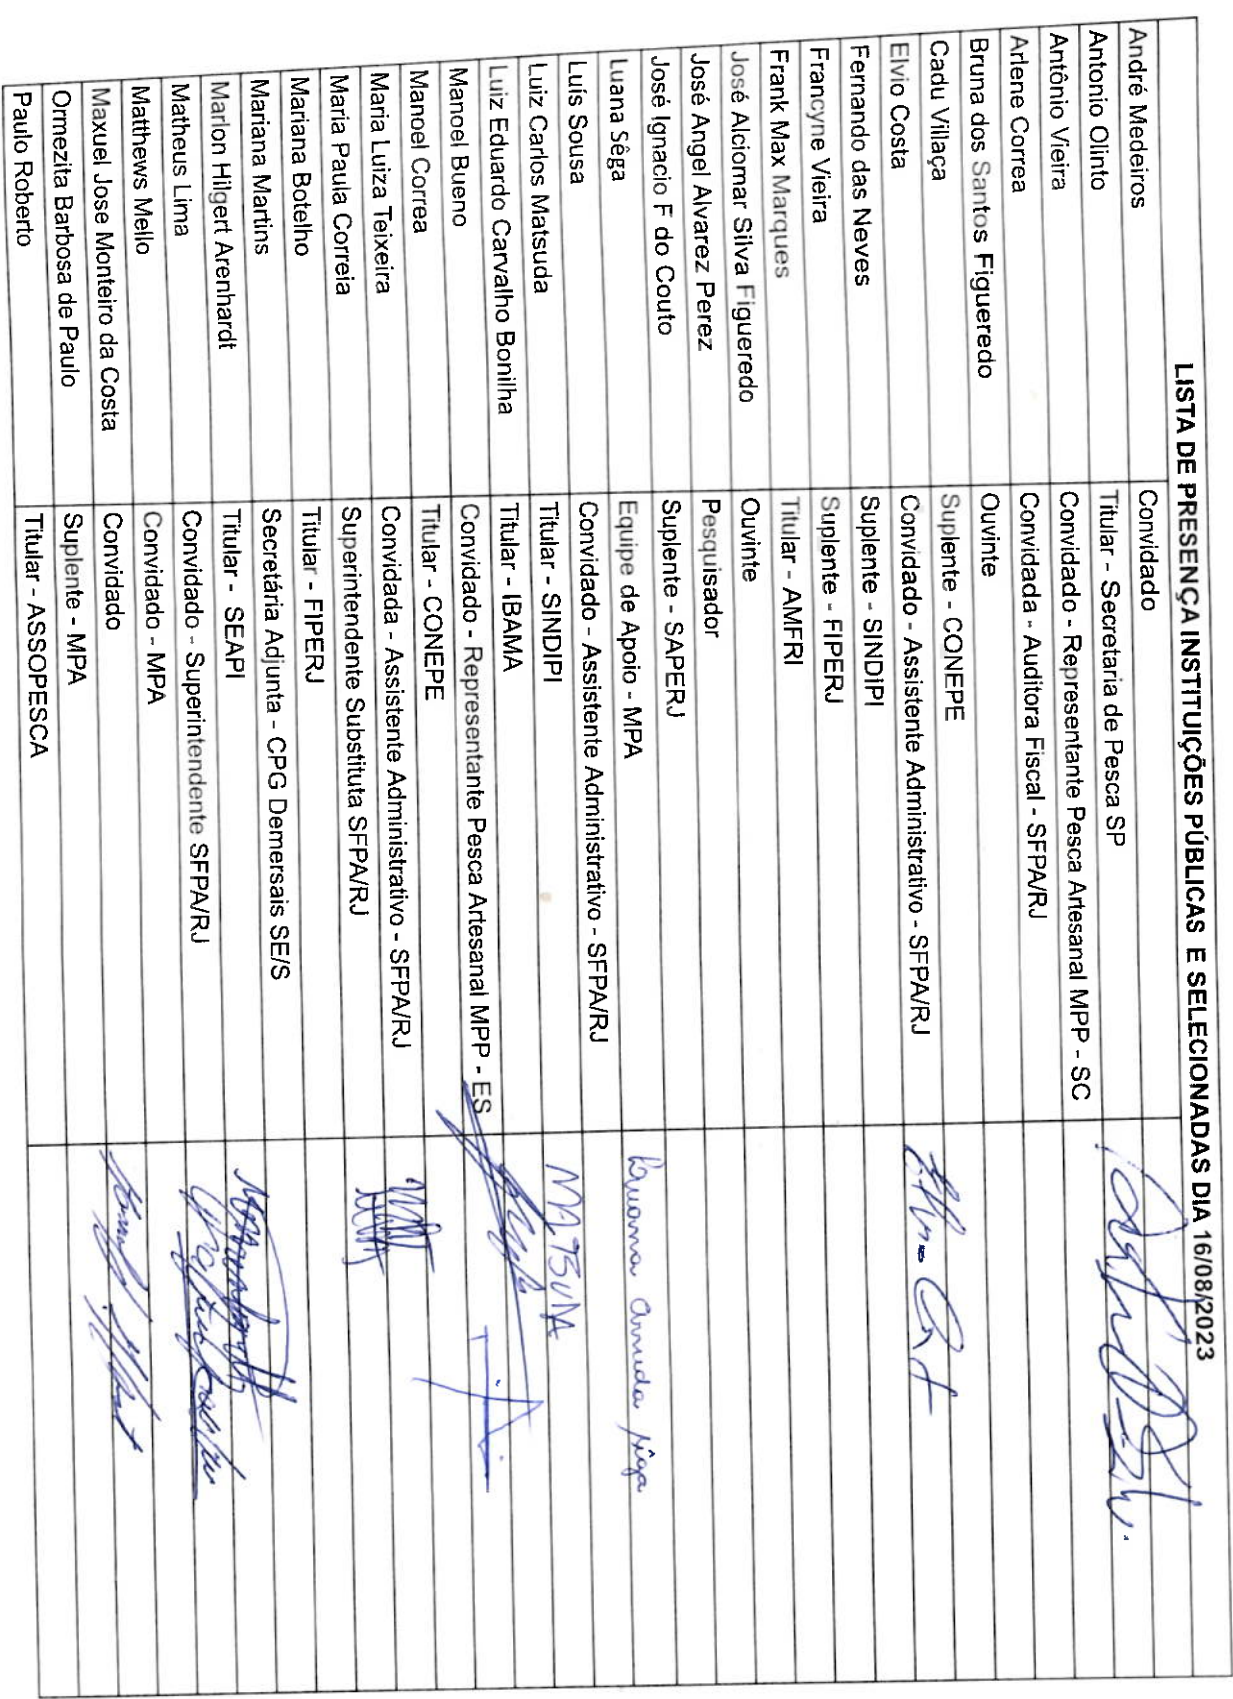 LISTA DE PRESENÇA INSTITUIÇÕES PÚBLICAS E SELECIONADAS DIA 16/08/2023
André Medeiros Convidado
Antonio Olinto Titular - Secretaria de Pesca SP
Antônio Vieira Convidado - Representante Pesca Artesanal MPP - SC
Arlene Correa Convidada - Auditora Fiscal - SFPA/RJ
Bruna dos Santos Figueredo Ouvinte
Cadu Villaça Suplente - CONEPE
Elvio Costa Convidado - Assistente Administrativo - SFPA/RJ
Fernando das Neves Suplente - SINDIPI
Francyne Vieira Suplente - FIPERJ
Frank Max Marques Titular - AMFRI
José Alciomar Silva Figueredo Ouvinte
José Angel Alvarez Perez Pesquisador
José Ignacio F do Couto Suplente - SAPERJ
Luana Sêga Equipe de Apoio - MPA Luana Arruda Sêga
Luís Sousa Convidado - Assistente Administrativo - SFPA/RJ
Luiz Carlos Matsuda Titular - SINDIPI
Luiz Eduardo Carvalho Bonilha Titular - IBAMA
Manoel Bueno Convidado - Representante Pesca Artesanal MPP - ES
Manoel Correa Titular - CONEPE
Maria Luiza Teixeira Convidada - Assistente Administrativo - SFPA/RJ
Maria Paula Correia Superintendente Substituta SFPA/RJ
Mariana Botelho Titular - FIPERJ
Mariana Martins Secretária Adjunta - CPG Demersais SE/S
Marlon Hilgert Arenhardt Titular - SEAPI
Matheus Lima Convidado - Superintendente SFPA/RJ
Matthews Mello Convidado - MPA
Maxuel Jose Monteiro da Costa Convidado
Ormezita Barbosa de Paulo Suplente - MPA
Paulo Roberto Titular - ASSOPESCA